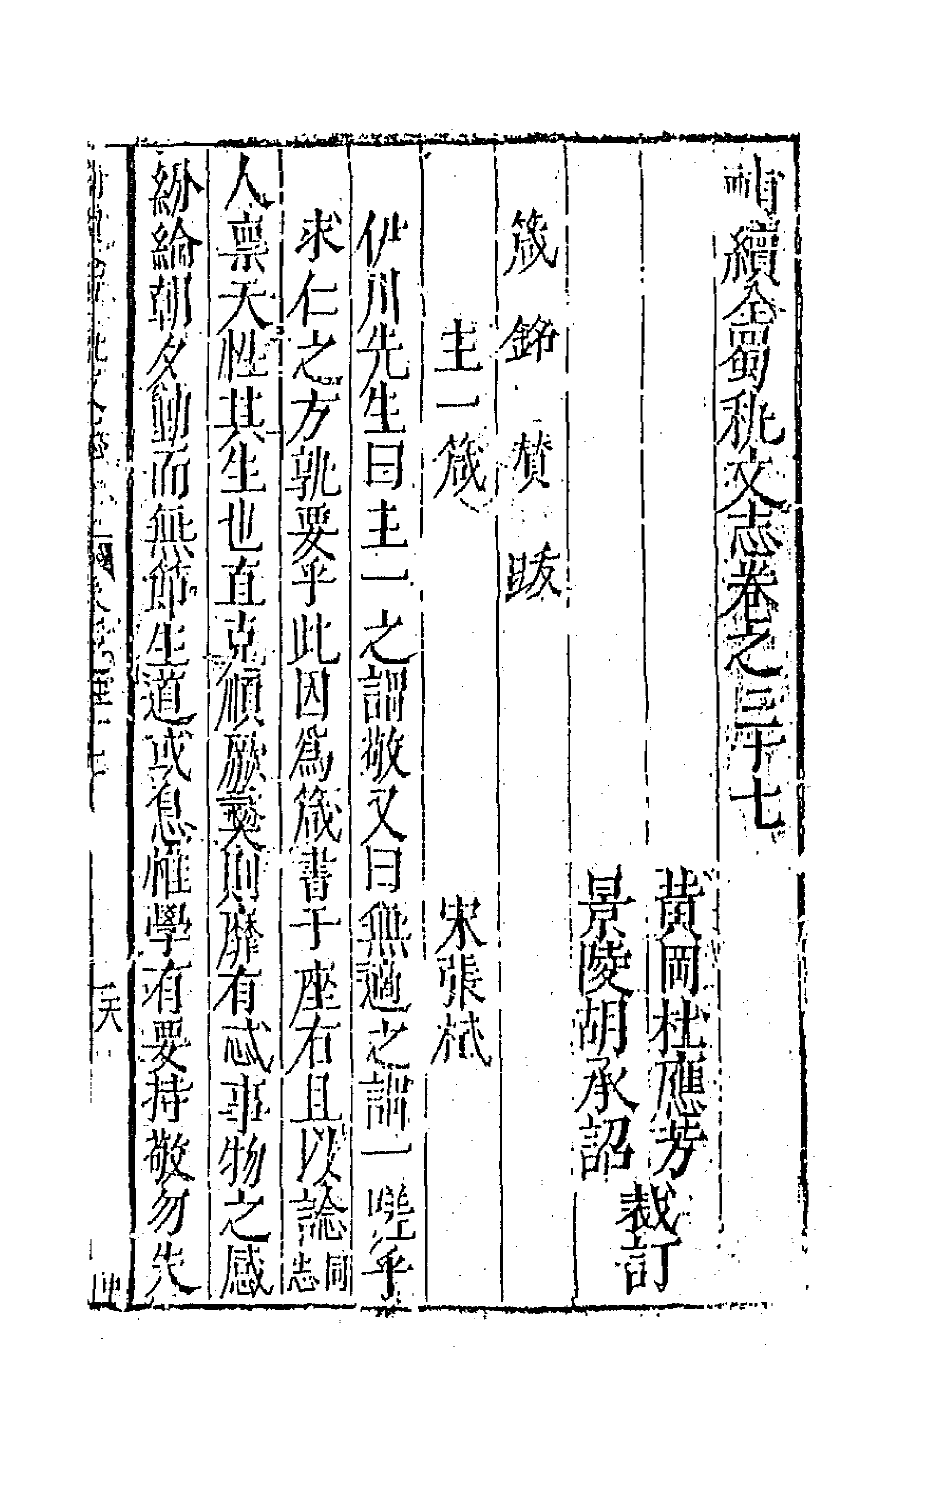 補續全蜀秇文志卷之三十七
黃岡杜應芳
景陵胡承詔
裁訂
箴 銘 賛 跋
主一箴 宋張栻
伊川先生曰主一之謂敬又曰無適之謂一嗟乎
求仁之方孰要乎此因為箴書于座右且以諗同志
人稟天性其生也直克順厥彞則靡有忒事物之感
紛綸朝夕動而無節生道或息惟學有要持敬勿失